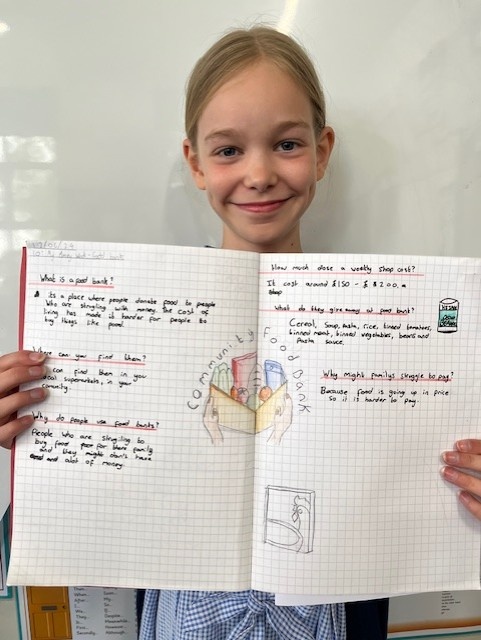 What is a food bank?
Its a place where people donate food to people
Who are strugling with money the cost of
living has made it harder for people to
buy things like food.
Where can you find them?
can find them in you
local supermarkets, in your
comunity.
Why do people use food banks?
People who are strugling to
buy food for there family
and they might don't have
alot of money.
Community
Food Bank
How much dose a weekly shop cost?
It cost around £150 - £200. a
shop
What do they give away at food bank?
Cereal, Soup, Pasta, rice, tinned tomatoes,
tinned meat, tinned vegetables, beans and
Pasta sauce.
Why might familys struggle to pay?
Because food is going up in price
so it is harder to pay